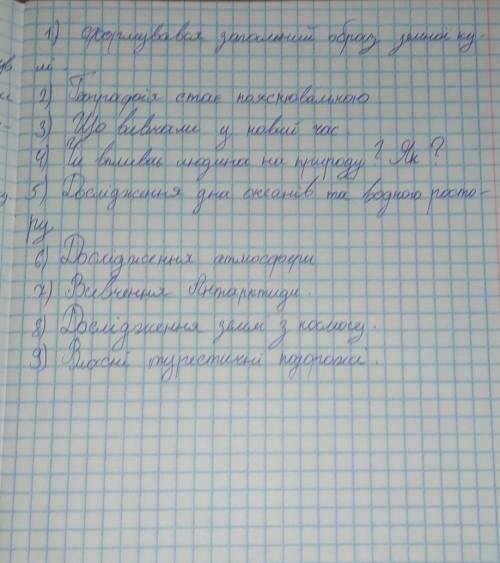 1) Формувався загальний образ земної ку-
лі.
2) Географія стає пояснювальною
3) Що вивчали у новий час
4) Чи впливає людина на природу? Як?
5) Дослідження дна океанів та водного росто-
ру
6) Дослідження атмосфери
7) Вивчення Антарктиди.
8) Дослідження землі з космосу.
9) Власні туристичні подорожі.